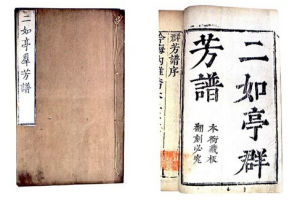 二如亭羣芳譜
二如亭群
芳譜
本衙藏板
翻刻必究
群芳譜序